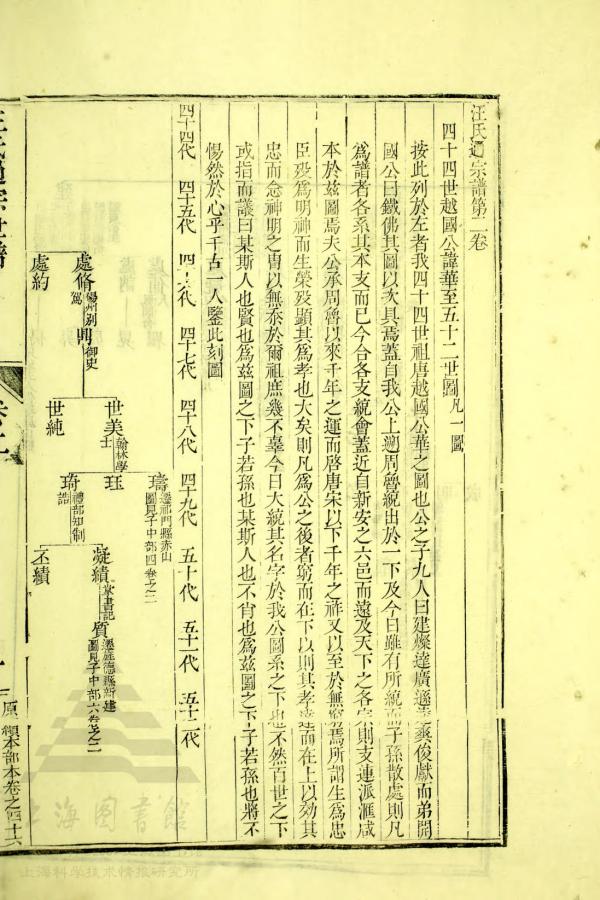 汪氏通宗譜第二卷
四十四世越國公諱華至五十二世圖凡一圖
按此列於左者我四十四世祖唐越國公華之圖也公之子九人曰建燦達廣遜爽俊獻而弟開
國公曰鐵佛其圖以次具焉蓋自我公上遡周魯統出於一下及今日雖有所統而子孫散處則凡
爲譜者各系其本支而已今合各支統會蓋近自新安之六邑而遠及天下之各宗則支連派滙咸
本於兹圖焉夫公承周魯以來千年之運而啓唐宋以下千年之祚又以至於無窮焉所謂生爲忠
臣歿爲明神而生榮歿顯其爲孝也大矣則凡爲公之後者窮而在下以則其孝達而在上以効其
忠而念神明之胄以無忝於爾祖庶幾不辜今日大統其名字於我公圖系之下也不然百世之下
或指而議曰某斯人也賢也爲兹圖之下子若孫也某斯人也不肖也爲兹圖之下子若孫也將不
惕然於心乎千古一人鑒此刻圖
四十四代 四十五代 四十六代 四十七代 四十八代 四十九代 五十代 五十一代 五十二代
璹 遷祁門縣赤山圖見子中部四卷之二
處脩 楊州别駕 開 御史 世美 翰林學士 珏 凝績 掌書記 質 遷旌德縣新建圖見子中部六卷之二
琦 禮部知制誥 丕績
處約 世純
汪氏通宗世譜 卷二 一 原總本部本卷之四十六
上海图書館
上海科学技术情报研究所